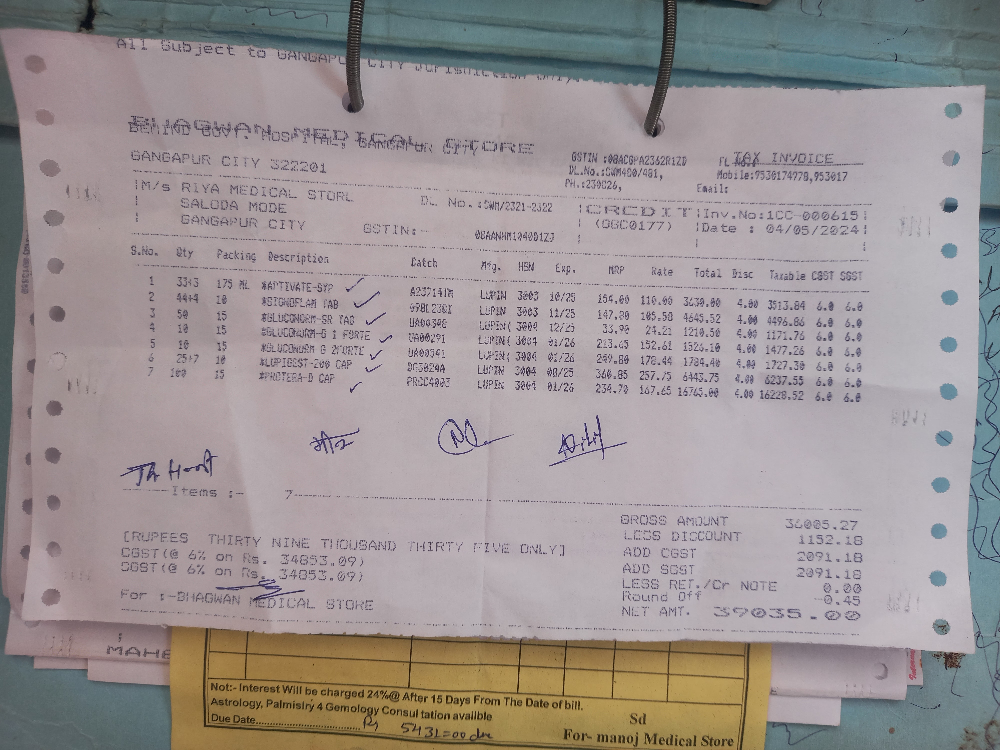 All Subject to GANGAPUR CITY Jurisdiction Only.
BHAGWAN MEDICAL STORE
BEHIND GOVT. HOSPITAL, GANGAPUR CITY
GANGAPUR CITY 322201
GSTIN :08ACGPA2362R1ZD
DL.No.:SWM480/481,
PH.:230026,
TAX INVOICE
Mobile:9530174978,953017
Email:
M/s RIYA MEDICAL STORE
SALODA MODE
GANGAPUR CITY
DL No.:SWM/2321-2322
GSTIN:- 08AANHM1040B1ZJ
CREDIT
(GGC0177)
Inv.No:1CC-000615
Date : 04/05/2024
S.No. Qty Packing Description Batch Mfg. HSN Exp. MRP Rate Total Disc Taxable CGST SGST
1 33+3 175 ML *APTIVATE-SYP LUPIN 3003 10/25 154.00 110.00 3630.00 4.00 3513.84 6.0 6.0
2 44+4 10 *SIGNOFLAM TAB LUPIN 3003 11/25 147.80 105.58 4645.52 4.00 4496.86 6.0 6.0
3 50 15 *GLUCONORM-SR TAB LUPIN( 3004 12/25 33.90 24.21 1210.50 4.00 1171.76 6.0 6.0
4 10 15 *GLUCONORM-G 1 FORTE UA00291 LUPIN( 3004 01/26 213.65 152.61 1526.10 4.00 1477.26 6.0 6.0
5 10 15 *GLUCONORM G 2FORTE UA00341 LUPIN( 3004 01/26 249.80 178.44 1784.40 4.00 1727.30 6.0 6.0
6 25+7 10 *LUPIBEST-200 CAP LUPIN 3004 08/25 360.85 257.75 6443.75 4.00 6237.55 6.0 6.0
7 100 15 *PROTERA-D CAP PRCC4003 LUPIN 3004 01/26 234.70 167.65 16765.00 4.00 16228.52 6.0 6.0
Items :- 7
[RUPEES THIRTY NINE THOUSAND THIRTY FIVE ONLY]
CGST(@ 6% on Rs. 34853.09)
SGST(@ 6% on Rs. 34853.09)
For :-BHAGWAN MEDICAL STORE
GROSS AMOUNT 36005.27
LESS DISCOUNT 1152.18
ADD CGST 2091.18
ADD SGST 2091.18
LESS RET./Cr NOTE 0.00
Round Off -0.45
NET AMT. 39035.00
MAHE
Not:- Interest Will be charged 24%@ After 15 Days From The Date of bill.
Astrology, Palmistry 4 Gemology Consul tation availble
Due Date............ Rs 5431=00 due
Sd
For- manoj Medical Store